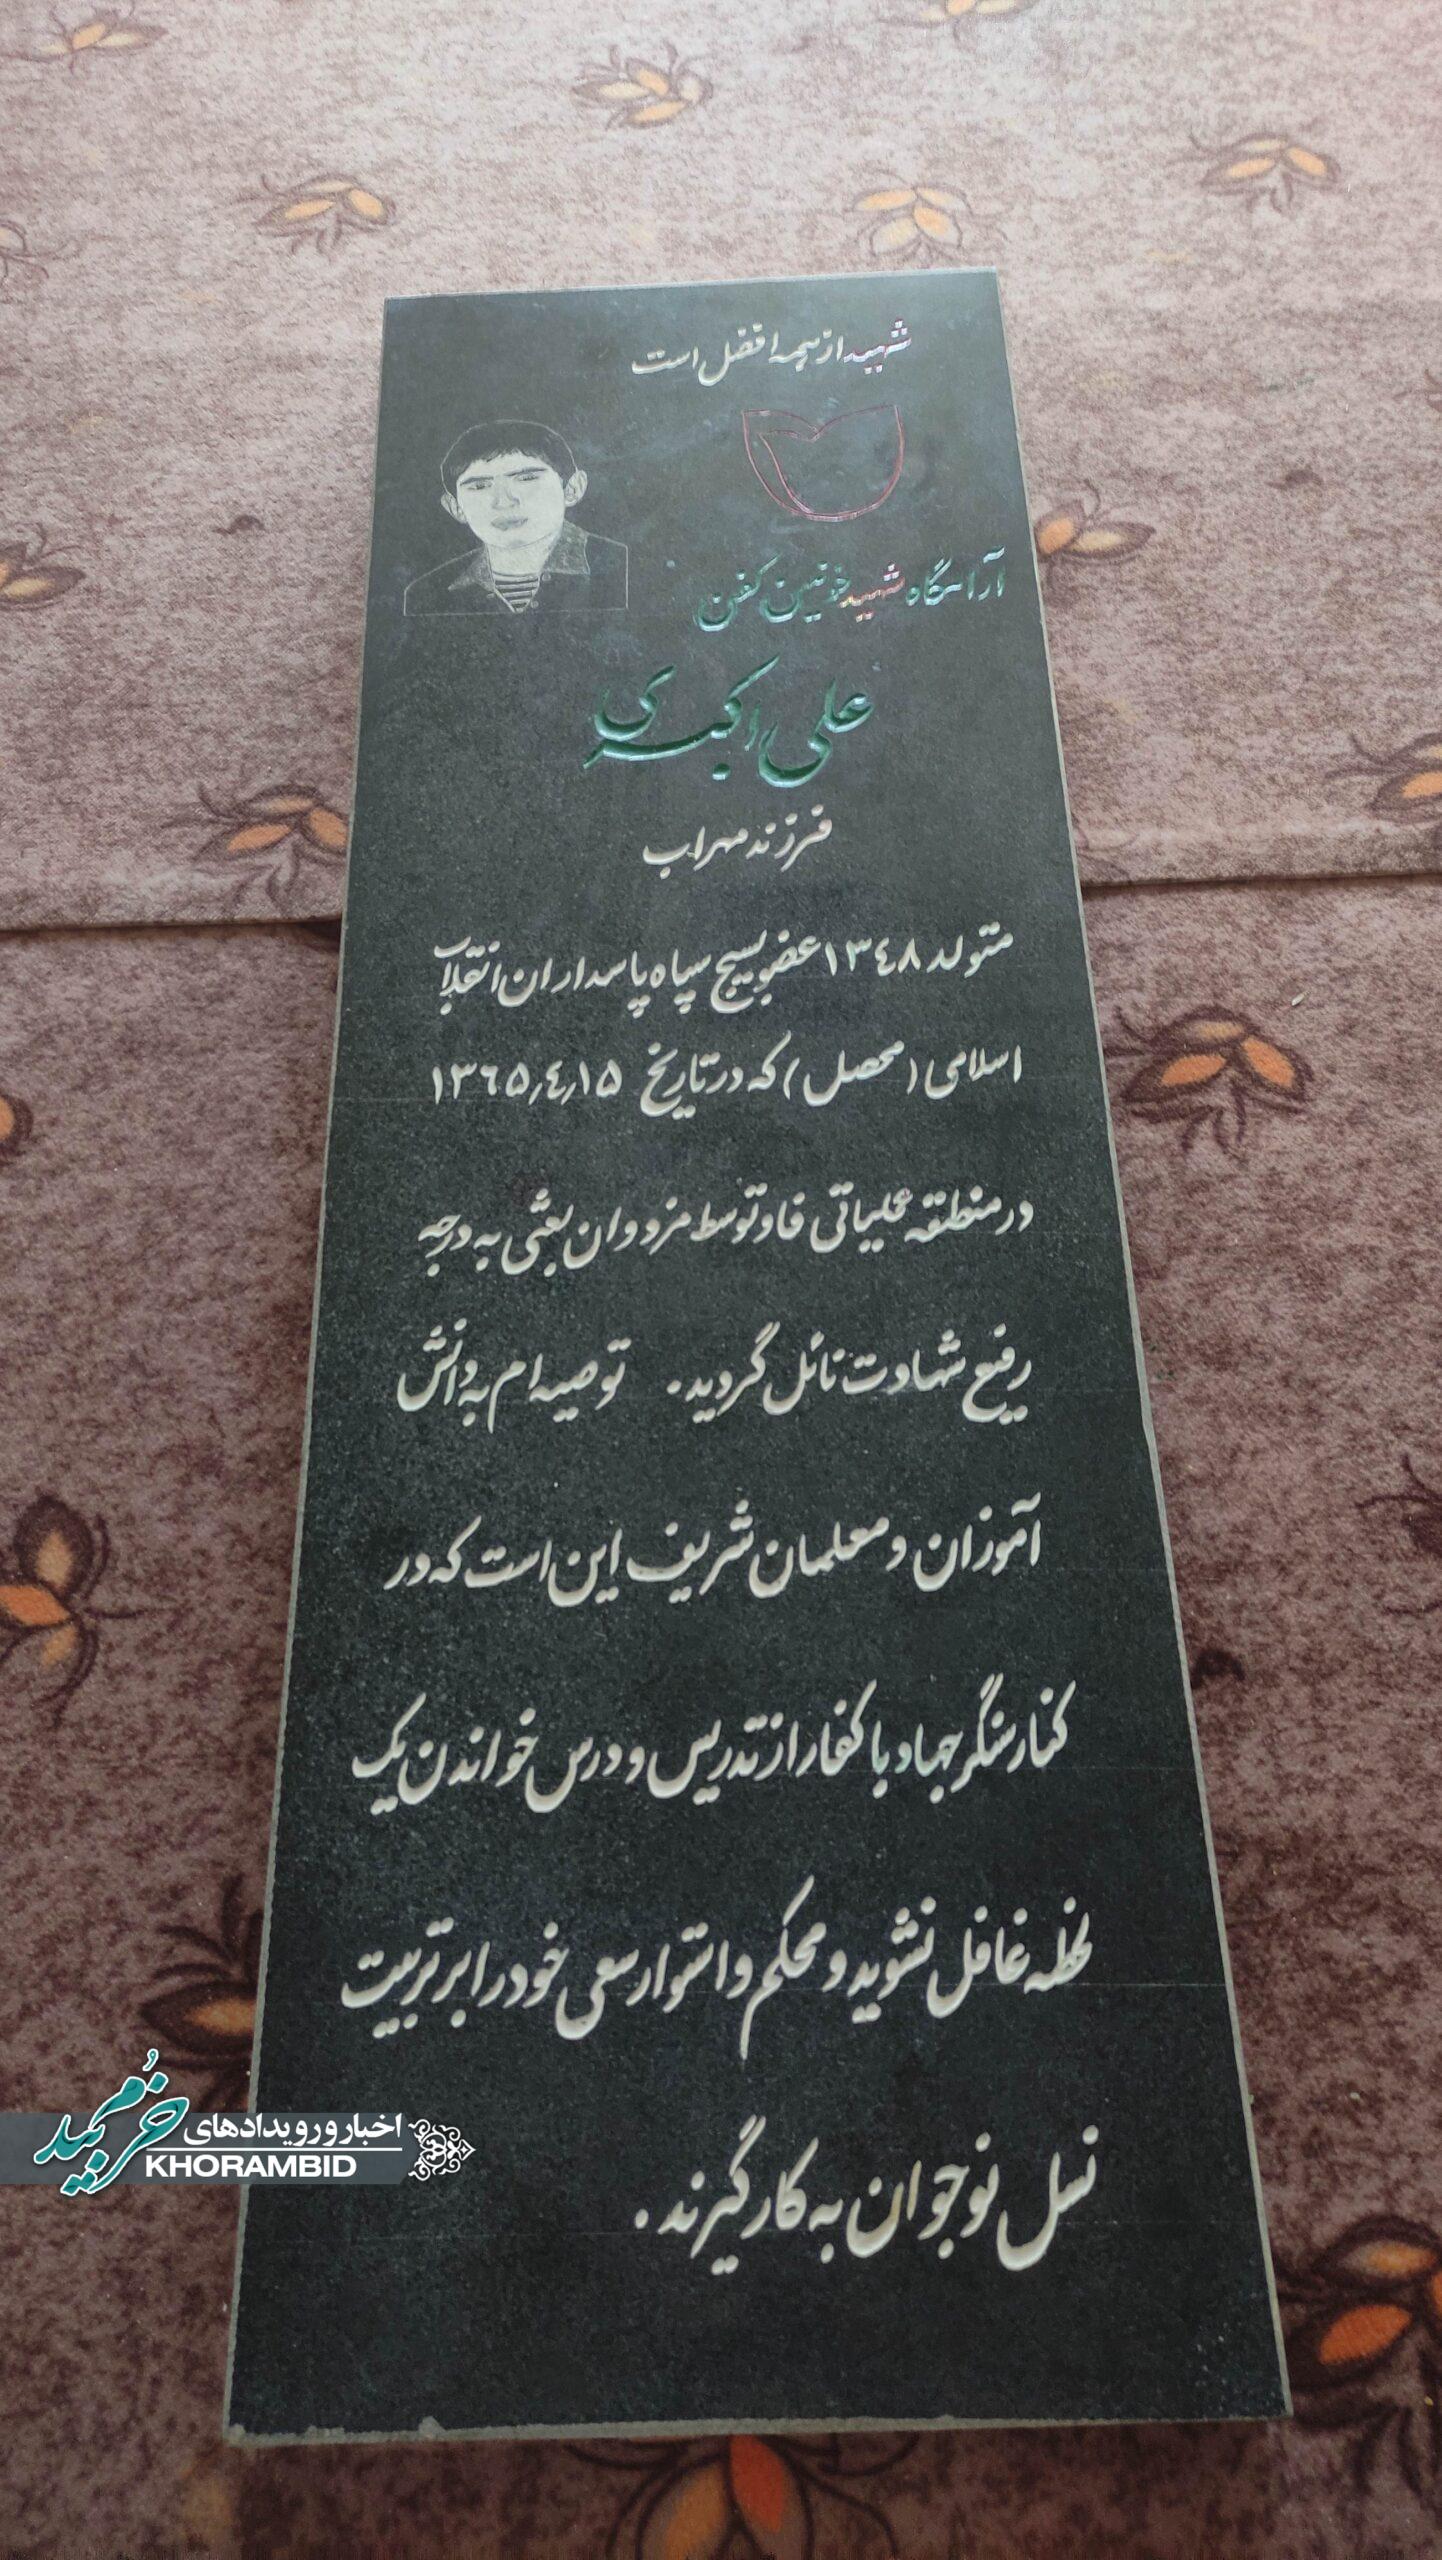 شهید از همه افضل است
آرامگاه شهید خونین کفن
علی اکبری
فرزند مهراب
متولد ۱۳۴۸ عضو بسیج سپاه پاسداران انقلاب
اسلامی (محصل) که در تاریخ ۱۳۶۵٫۴٫۱۵
در منطقه عملیاتی فاو توسط مزدوران بعثی به درجه
رفیع شهادت نائل گردید. توصیه ام به دانش
آموزان و معلمان شریف این است که در
کنار سنگر جهاد با کفار از تدریس و درس خواندن یک
لحظه غافل نشوید و محکم و استوار سعی خود را بر تربیت
نسل نوجوان به کار گیرند.
اخبار و رویدادهای
خرمبید
KHORAMBID